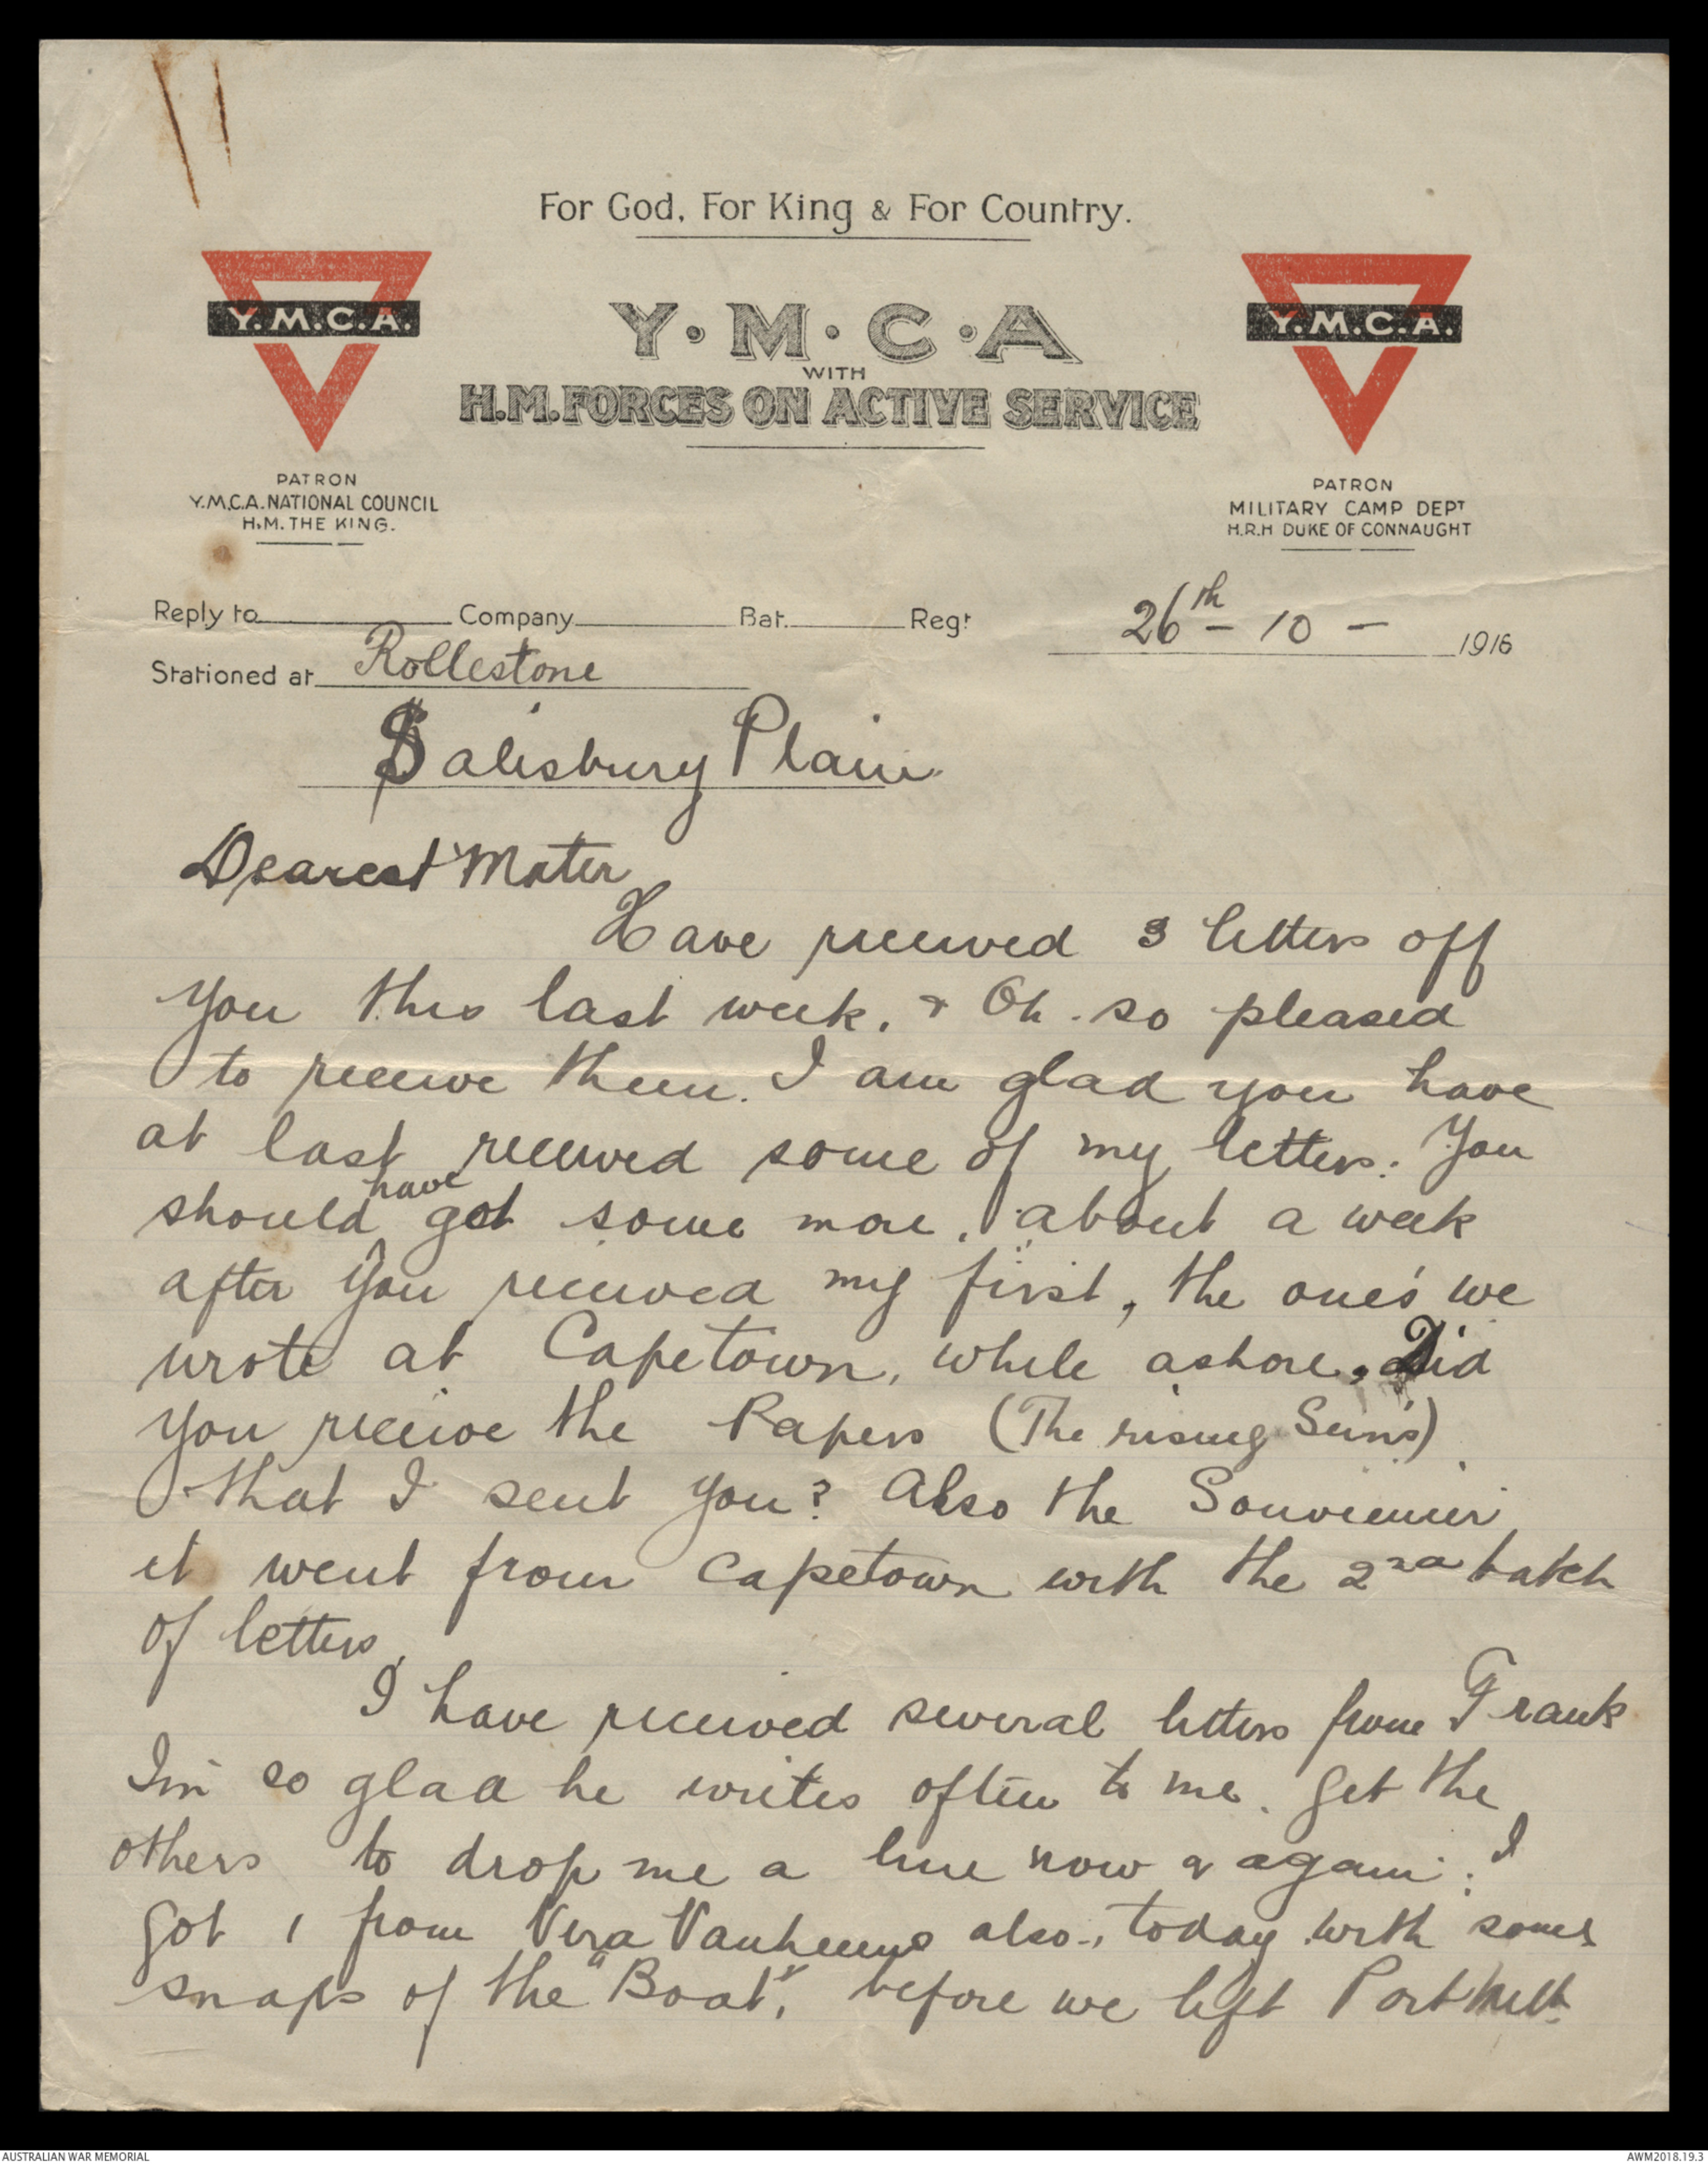 For God, For King & For Country.
Y.M.C.A.
Y·M·C·A
Y.M.C.A.
WITH
H.M. FORCES ON ACTIVE SERVICE
PATRON
Y.M.C.A. NATIONAL COUNCIL
H.M. THE KING.
PATRON
MILITARY CAMP DEPT
H.R.H DUKE OF CONNAUGHT
Reply to Company Bat. Regt
26th - 10 - 1916
Stationed at Rollestone
Salisbury Plain
Dearest Mater
Have received 3 letters off
you this last week, & Oh so pleased
to receive them. I am glad you have
at last received some of my letters. You
should have got some more, about a week
after you received my first, the one's we
wrote at Capetown, while ashore, Did
you receive the Papers (The rising Sun's)
that I sent you? Also the Souvenier
it went from Capetown with the 2nd batch
of letters,
I have received several letters from Frank
I'm so glad he writes often to me. Get the
others to drop me a line now & again. I
got 1 from Vera also, today with some
snaps of the "Boat", before we left Port Melb.
AUSTRALIAN WAR MEMORIAL
AWM2018.19.3